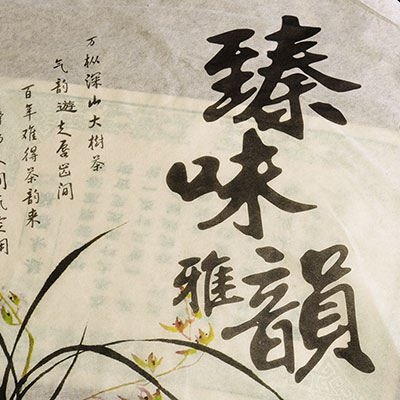 臻味
雅韻
万樅深山大樹茶
气韵遊走唇齿间
百年难得茶韵来